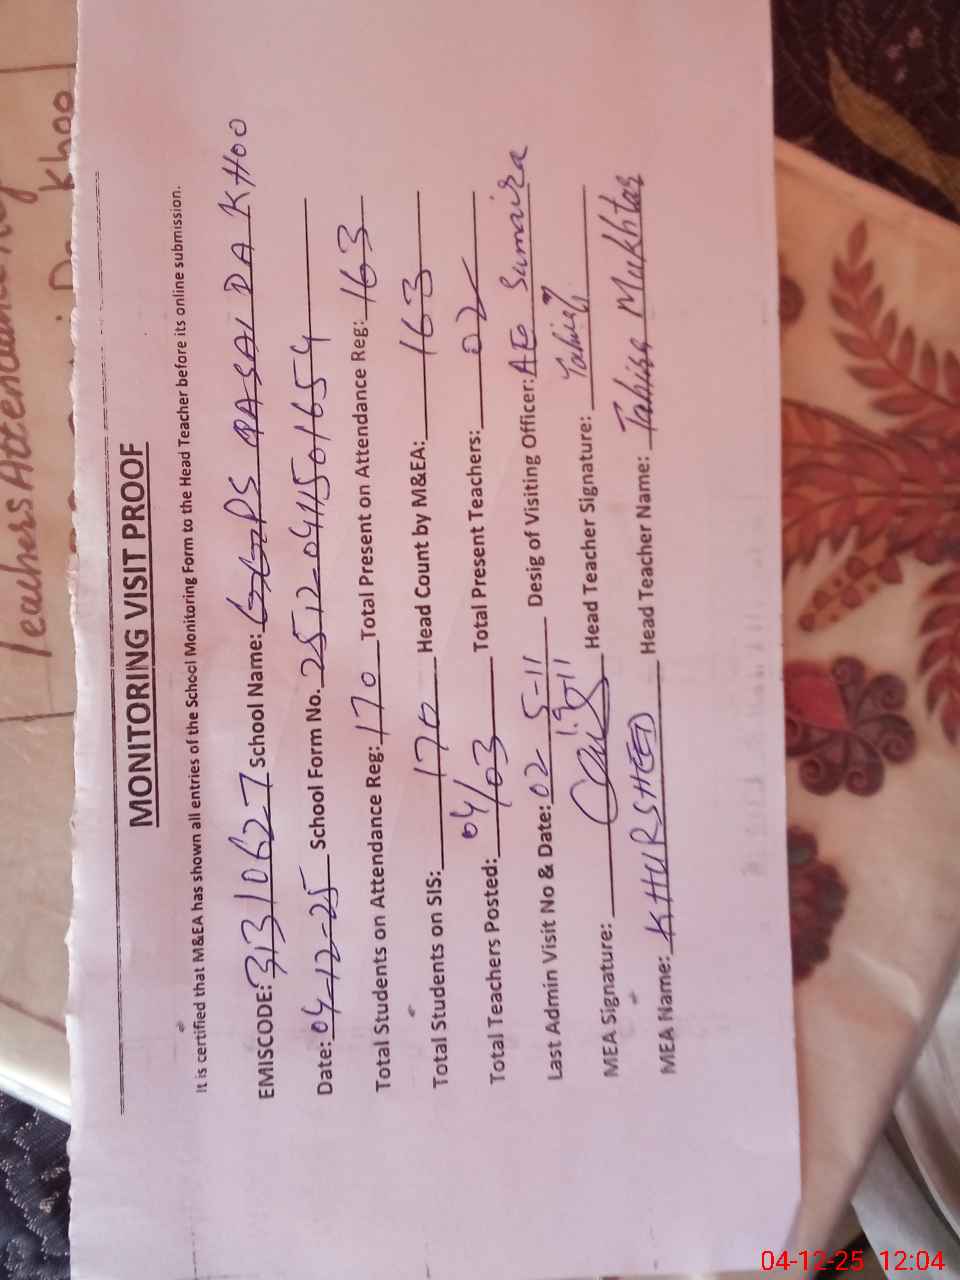 Teachers Attendance
Khoo
MONITORING VISIT PROOF
It is certified that M&EA has shown all entries of the School Monitoring Form to the Head Teacher before its online submission.
EMISCODE: 31310627 School Name: GGPS QASAI DA KHOO
Date: 04-12-25 School Form No. 25120411501654
Total Students on Attendance Reg: 170 Total Present on Attendance Reg: 163
Total Students on SIS: 170 Head Count by M&EA: 163
Total Teachers Posted: 04/03 Total Present Teachers: 02
Last Admin Visit No & Date: 02 5-11 Desig of Visiting Officer: AEO Sumaira
MEA Signature: Head Teacher Signature:
MEA Name: KHURSHEED Head Teacher Name: Tahira Mukhtar
04-12-25 12:04